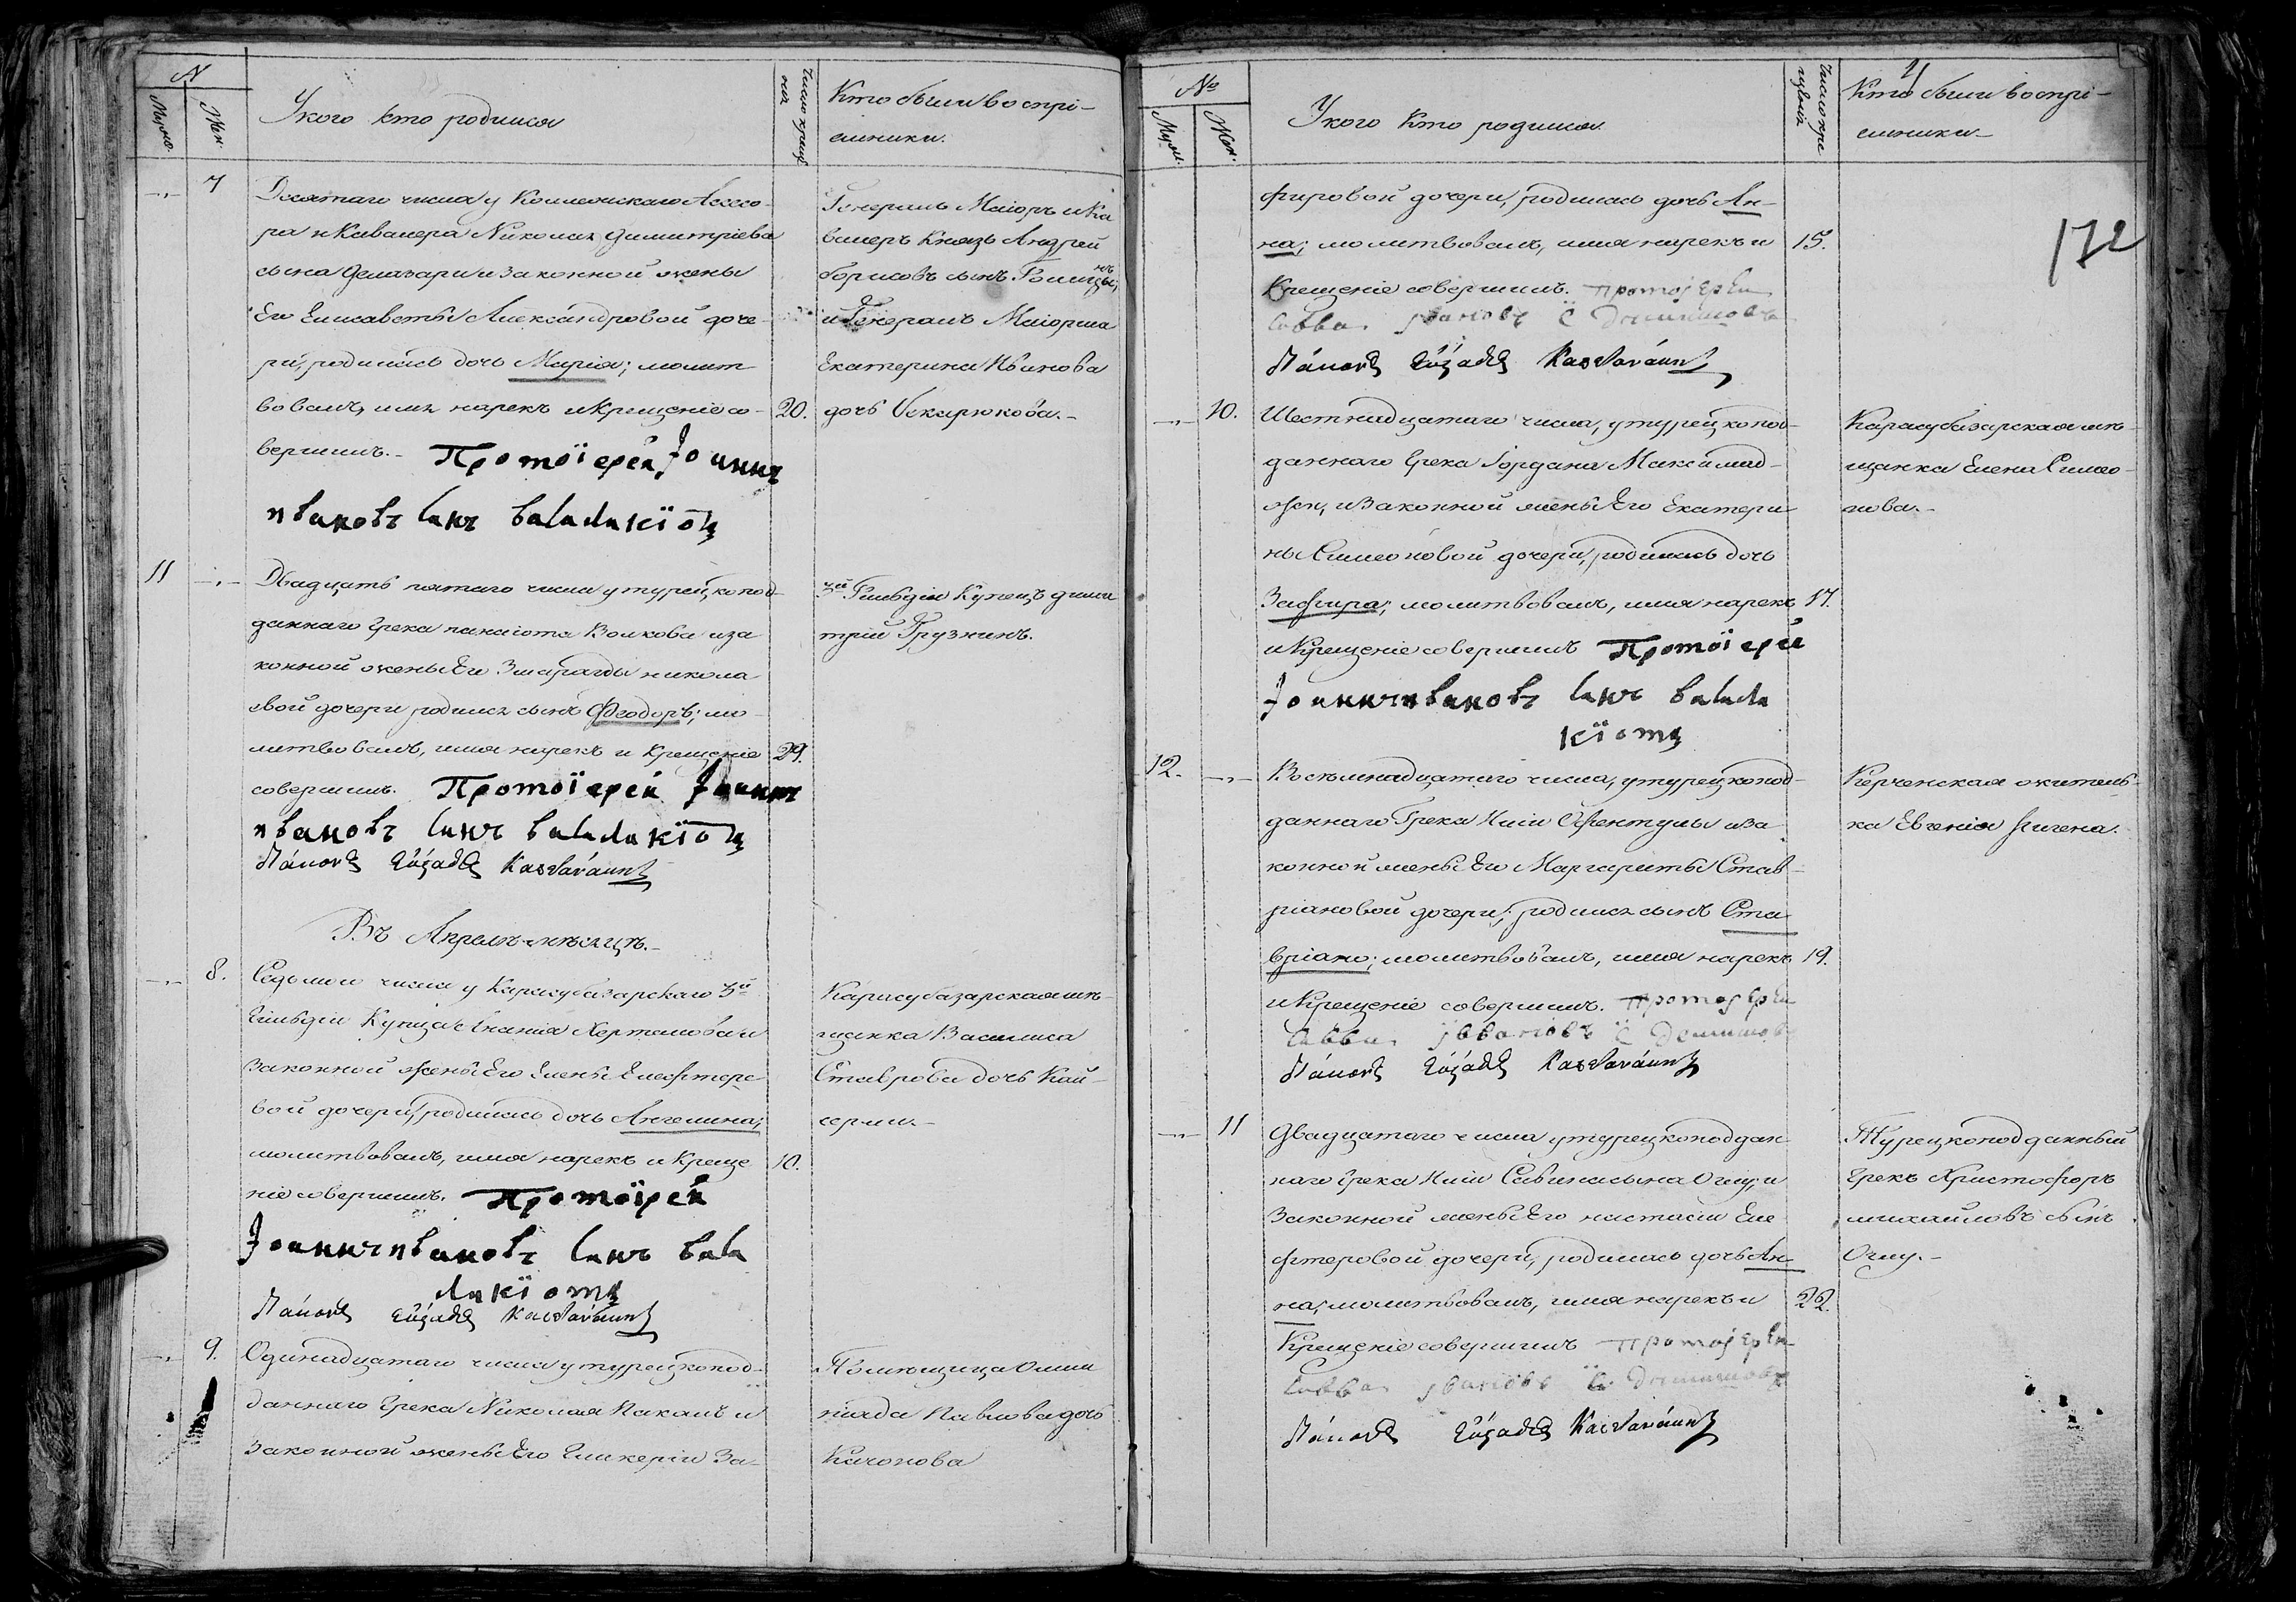 N
Мужс.
Жен.
У кого кто родился
Число крещенія
Кто были воспрі-
емники.
7
Десятаго числа у Коллежскаго Ассесо-
ра и Кавалера Николая Димитріева
сына Делазари и законной жены
Его Елисаветы Александровой доче-
ри, родилась дочь Марія; молит
вовалъ, имя нарекъ и Крещеніе со-
20.
вершилъ. Протоїерей Іоаннъ
ивановъ сынъ
Генералъ Маіоръ и Ка
валеръ Князь Андрей
Борисовъ сынъ Голицынъ;
и Генералъ Маіорша
Екатерина Иванова
дочь Бекарюкова.
11
Двадцать пятаго числа у турецкопод-
даннаго Грека панаіота Волкова и за
конной жены Его Змарагды никола
евой дочери родился сынъ Феодоръ; мо
литвовалъ, имя нарекъ и Крещеніе
29.
совершилъ. Протоїерей Іоаннъ
ивановъ сынъ
3й Гильдіи Купецъ Дими
трій Грузнинъ.
Въ Апрелѣ мѣсяцѣ.
8.
Седьмого числа у Карасубазарскаго 3й
Гильдіи Купца Ананія Харталова и
Законной жены Его Елены Елевтере
вой дочери, родилась дочь Ангелина;
молитвовалъ, имя нарекъ и Креще
10.
ніе совершилъ. Протоїерей
Іоаннъ ивановъ сынъ
Карасубазарская мѣ-
щанка Василиса
Ставрова дочь Кай-
серли.
9.
Одинадцатаго числа у турецкопод-
даннаго Грека Николая Пакалъ и
Законной жены Его Гликеріи За-
Помѣщица Олим
піада Павлова дочь
Качонова
№
Мужс.
Жен.
У кого кто родился.
Число крещенія
Кто были воспрі-
емники
172
фировой дочери, родилась дочь Ан-
на; молитвовалъ, имя нарекъ и
15.
Крещеніе совершилъ. протоіерей
Савва
10.
Шестнадцатаго числа, у турецкопод-
даннаго Грека Іордана Максимад-
жи, и Законной жены Его Екатери
ны Симеоновой дочери, родилась дочь
Зафира; молитвовалъ, имя нарекъ
17.
и Крещеніе совершилъ Протоїерей
Іоаннъ ивановъ сынъ
Карасубазарская мѣ-
щанка Елена Симео-
нова.
12.
Восемнадцатаго числа, у турецкопод-
даннаго Грека Иліи Офентулы и за
конной жены Его Маргариты Став-
ріановой дочери; родился сынъ Ста
вріано; молитвовалъ, имя нарекъ
19.
и Крещеніе совершилъ. протоіерей
Савва
Керченская житель-
ка Евгенія
11
Двадцатаго числа у турецкоподдан
наго Грека Иліи Савина сына Оглу; и
Законной жены Его настасіи Еле
фтеровой дочери, родилась дочь Ан-
на, молитвовалъ, имя нарекъ и
22.
Крещеніе совершилъ протоіерей
Савва
Турецкоподданный
Грекъ Христофоръ
михаиловъ сынъ
Оглу.